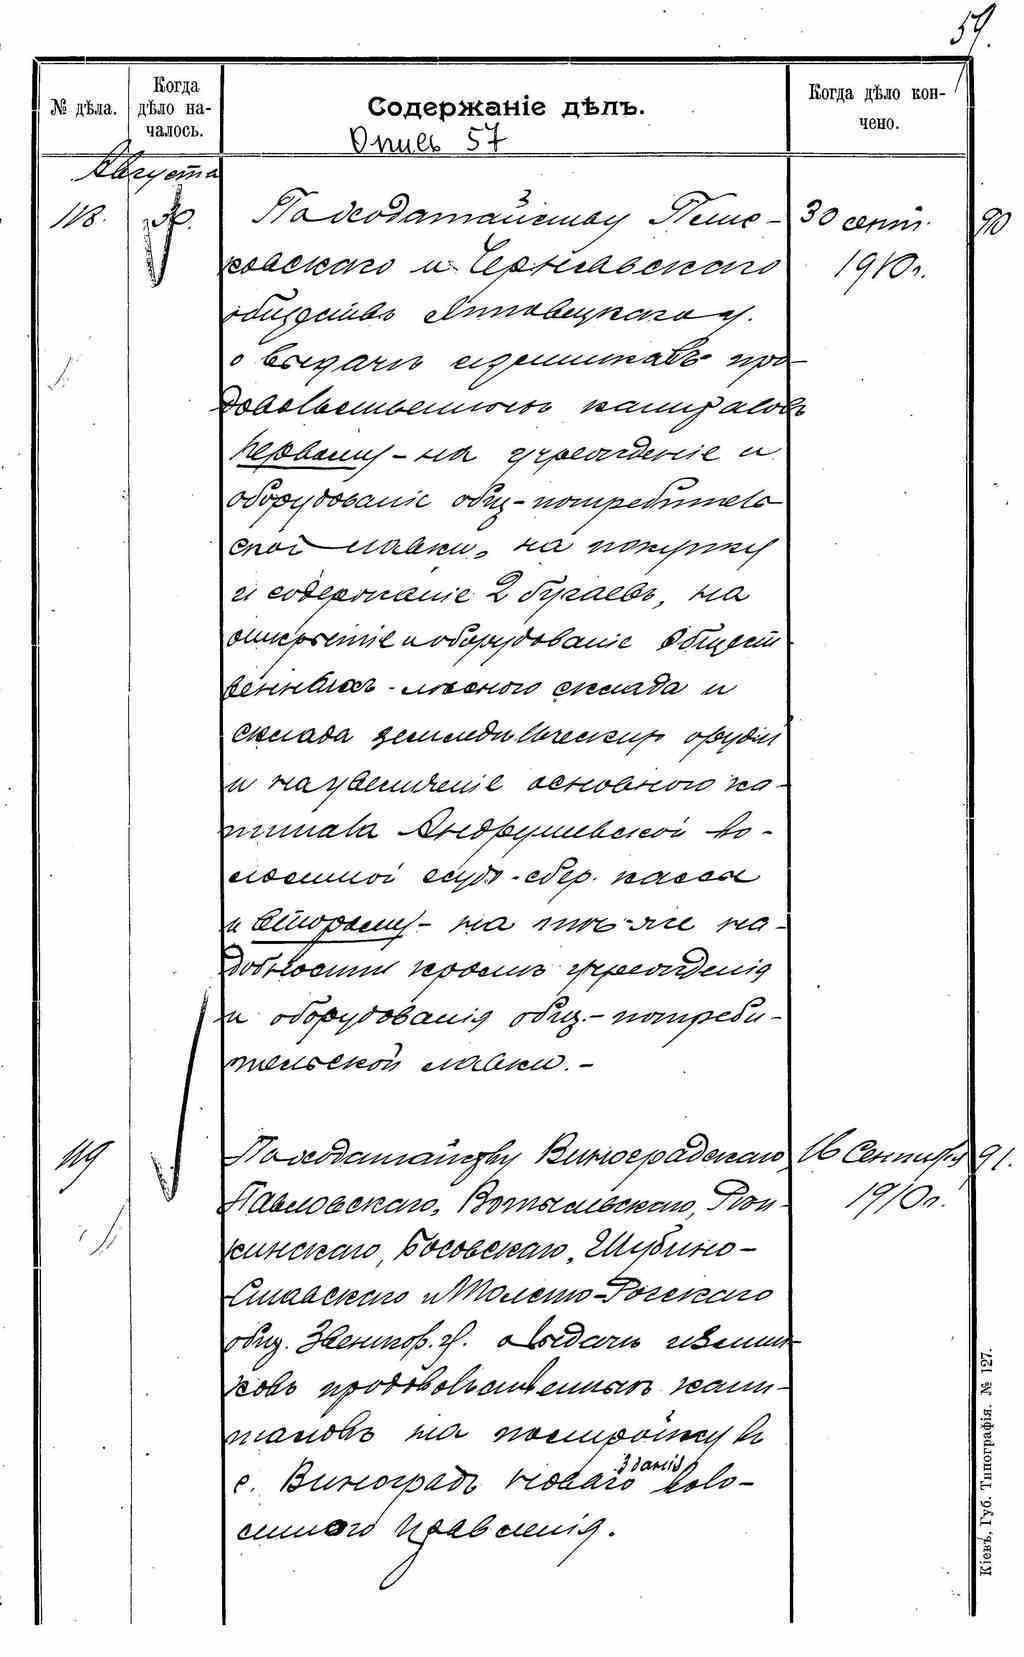 59.
№ дѣла.
Когда дѣло началось.
Содержаніе дѣлъ.
Когда дѣло кончено.
Опись 57
Августа
118. 30. По ходатайству 30 сент. 90
ковскаго и Чернявскаго 1910 г.
обществъ Липовецкаго у.
о выдачѣ излишковъ про-
довольственныхъ капиталовъ
первому – на учрежденіе и
оборудованіе общ.-потребитель
ской лавки, на покупку
и содержаніе 2 бугаевъ, на
открытіе и оборудованіе Общест
венныхъ - лѣсного склада и
склада земледѣльческихъ орудій
и на увеличеніе основного ка-
питала Андрушевской во-
лостной ссудо-сбер. кассы
и второму – на тѣ-же на-
добности кромѣ учрежденія
и оборудованія общ.-потреби-
тельской лавки. –
119 По ходатайству Виноградскаго, 16 Сентября 91.
Павловскаго, Ропт- 1910 г.
кинскаго, Босовскаго, Шубино-
Ставскаго и Толсто-Рогскаго
общ. Звенигор. у. о выдачѣ излиш
ковъ продовольственныхъ капи-
таловъ на постройку въ
с. Виноградѣ новаго зданія воло-
стного Правленія.
Кіевъ, Губ. Типографія. № 127.